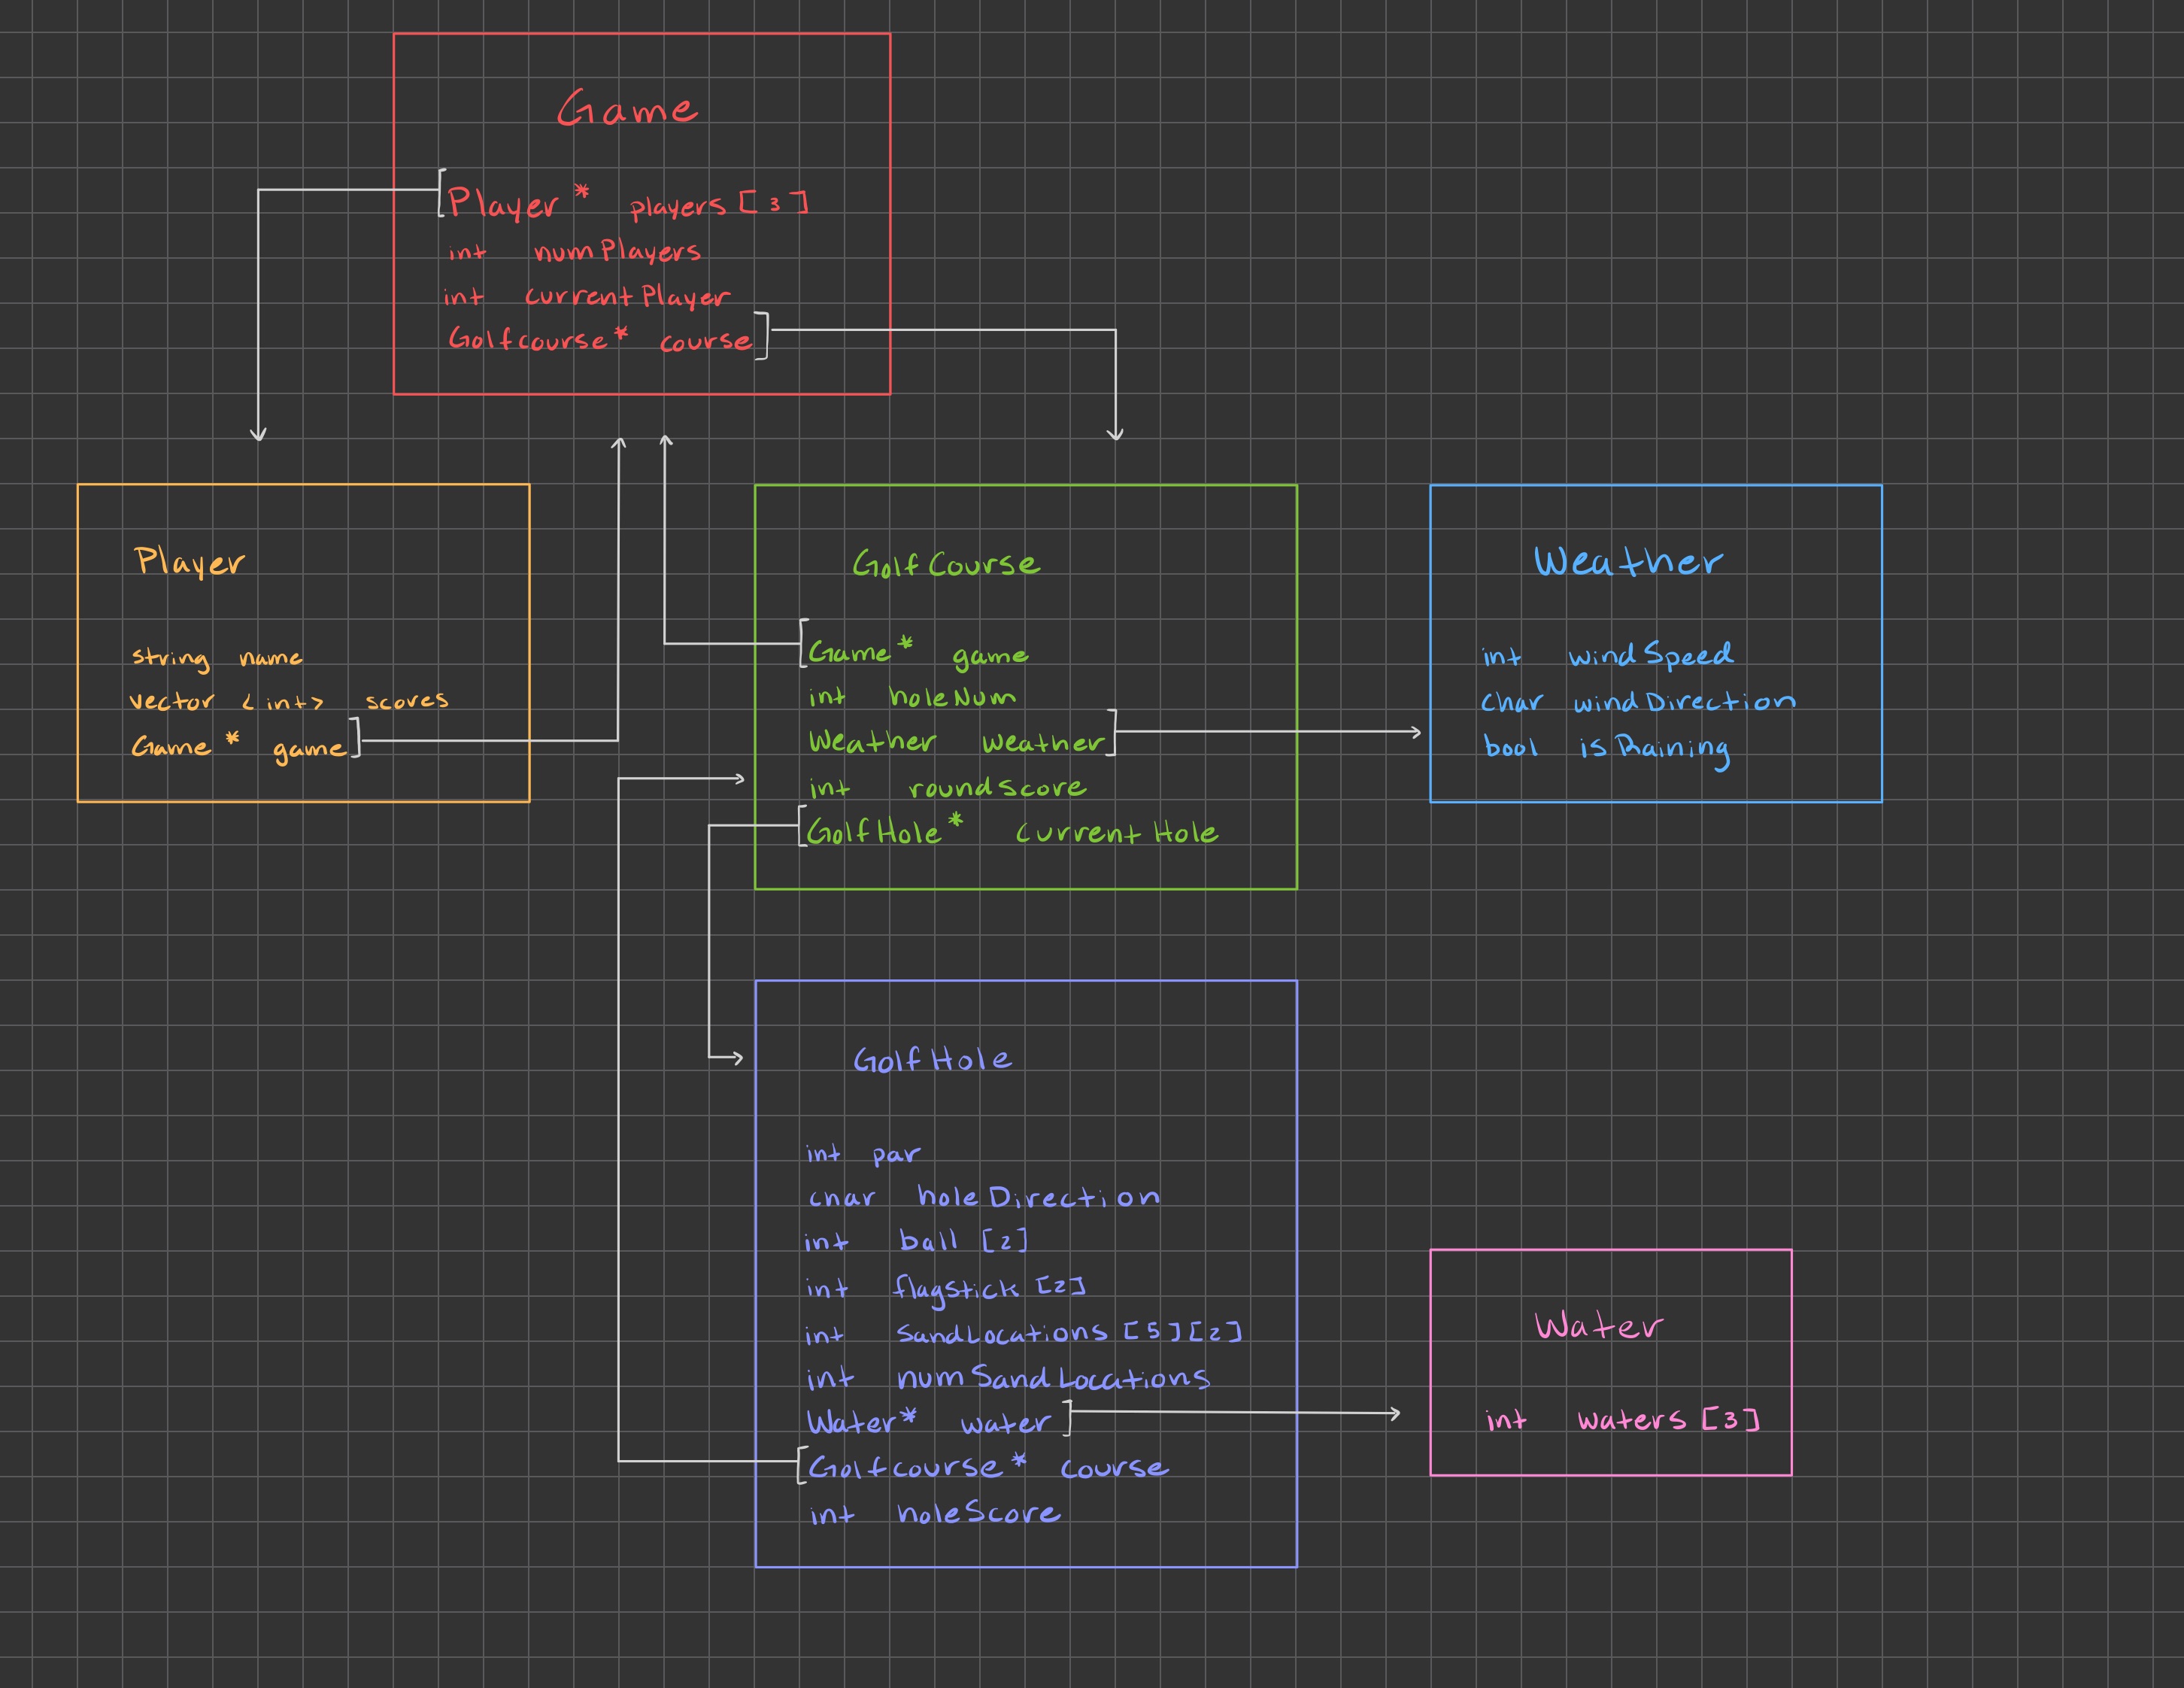 Game
Player* players[3]
int numPlayers
int currentPlayer
Golfcourse* course
Player
string name
vector <int> scores
Game* game
GolfCourse
Game* game
int holeNum
Weather weather
int roundscore
GolfHole* currentHole
Weather
int windSpeed
char windDirection
bool isRaining
GolfHole
int par
char holeDirection
int ball [2]
int flagstick [2]
int sandLocations [5][2]
int numSandLocations
Water* water
Golfcourse* course
int holeScore
Water
int waters [3]